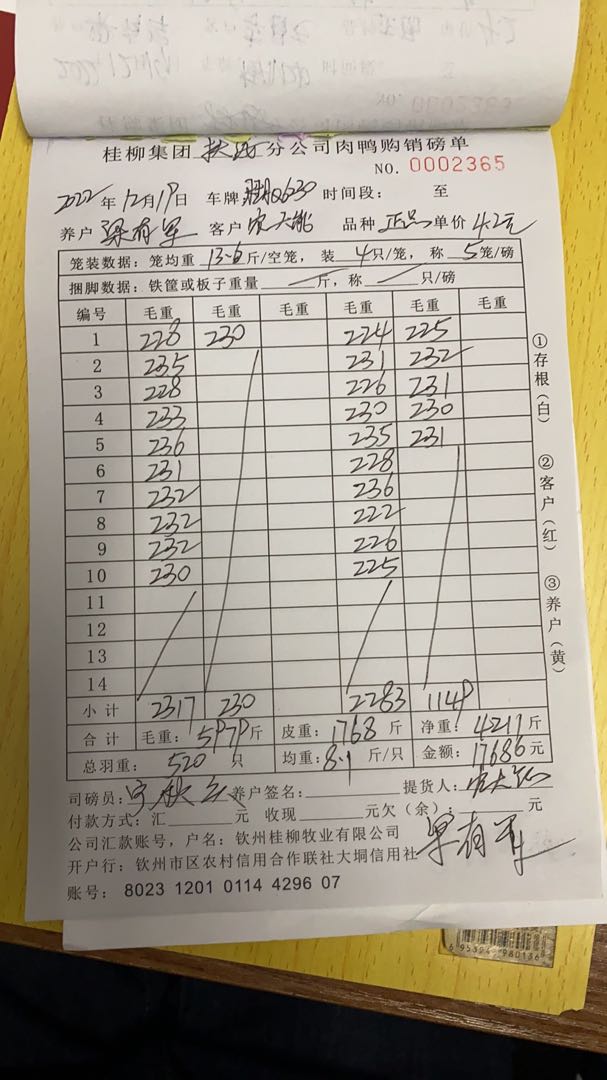 桂柳集团 分公司肉鸭购销磅单
NO. 0002365
2022年12月19日 车牌 Q2630 时间段： 至
养户 梁有军 客户 农大 品种 正品 单价 4.2元
笼装数据：笼均重 13.6 斤/空笼，装 4 只/笼，称 5 笼/磅
捆脚数据：铁筐或板子重量 斤，称 只/磅
编号 毛重 毛重 毛重 毛重 毛重 毛重
1 228 230 224 225
2 235 231 232
3 228 226 231
4 233 230 230
5 236 235 231
6 231 228
7 232 236
8 232 222
9 232 226
10 230 225
11
12
13
14
小计 2317 230 2283 1149
合计 毛重：5979斤 皮重：1768斤 净重：4211斤
总羽重：520只 均重：8.1斤/只 金额：17686元
司磅员： 养户签名： 提货人：农大
付款方式：汇 元 收现 元欠（余）： 元
公司汇款账号，户名：钦州桂柳牧业有限公司
开户行：钦州市区农村信用合作联社大垌信用社 梁有军
账号：8023 1201 0114 4296 07
①存根（白）
②客户（红）
③养户（黄）